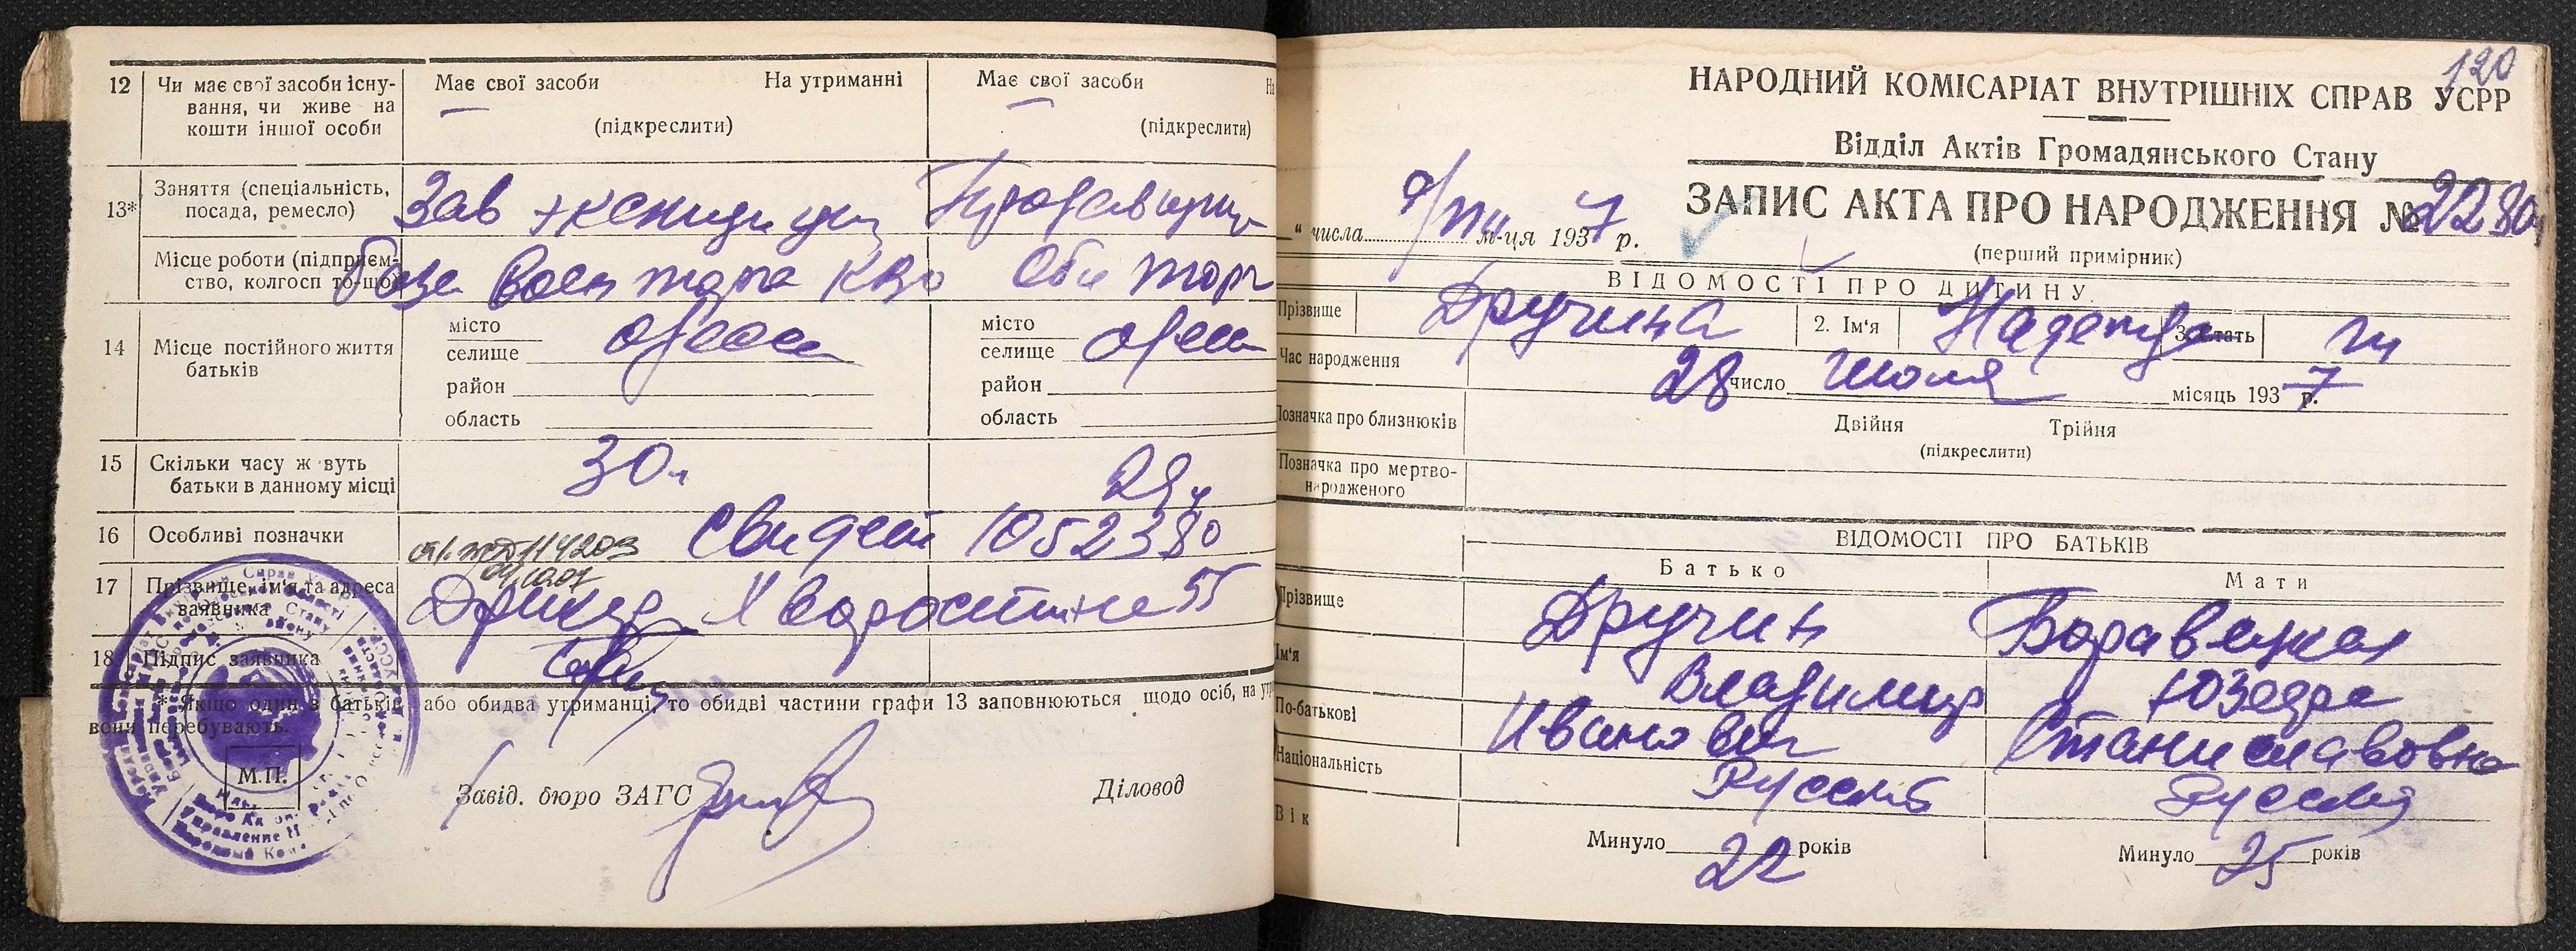 12 Чи має свої засоби існу-
вання, чи живе на
кошти іншої особи
Має свої засоби На утриманні
(підкреслити)
Має свої засоби На
(підкреслити)
13* Заняття (спеціальність,
посада, ремесло)
Зав
Місце роботи (підприєм-
ство, колгосп то-що)
база Воен торга КВО торг
14 Місце постійного життя
батьків
місто
селище Одесса
район
область
місто
селище Одесса
район
область
15 Скільки часу ж вуть
батьки в данному місці
30 л 29
16 Особливі позначки
114203 Свидет 1052380
17 Прізвище, ім'я та адреса
заявника
55
18 Підпис заявника
* Якщо один з батьків або обидва утриманці, то обидві частини графи 13 заповнюються щодо осіб, на ут
вони перебувають.
М.П.
Завід. бюро ЗАГС Діловод
120
НАРОДНИЙ КОМІСАРІАТ ВНУТРІШНІХ СПРАВ УСРР
Відділ Актів Громадянського Стану
ЗАПИС АКТА ПРО НАРОДЖЕННЯ № 2280
„ числа 9/VIII м-ця 1937 р.
(перший примірник)
ВІДОМОСТІ ПРО ДИТИНУ
Прізвище Дручина 2. Ім'я Надежда 3. Стать
Час народження 28 число Июля місяць 1937 р.
Позначка про близнюків Двійня Трійня
(підкреслити)
Позначка про мертво-
народженого
ВІДОМОСТІ ПРО БАТЬКІВ
Батько Мати
Прізвище Дручин
Ім'я Владимир
По-батькові Иванович Станиславовна
Національність Русский Русская
Вік Минуло 22 років Минуло 25 років